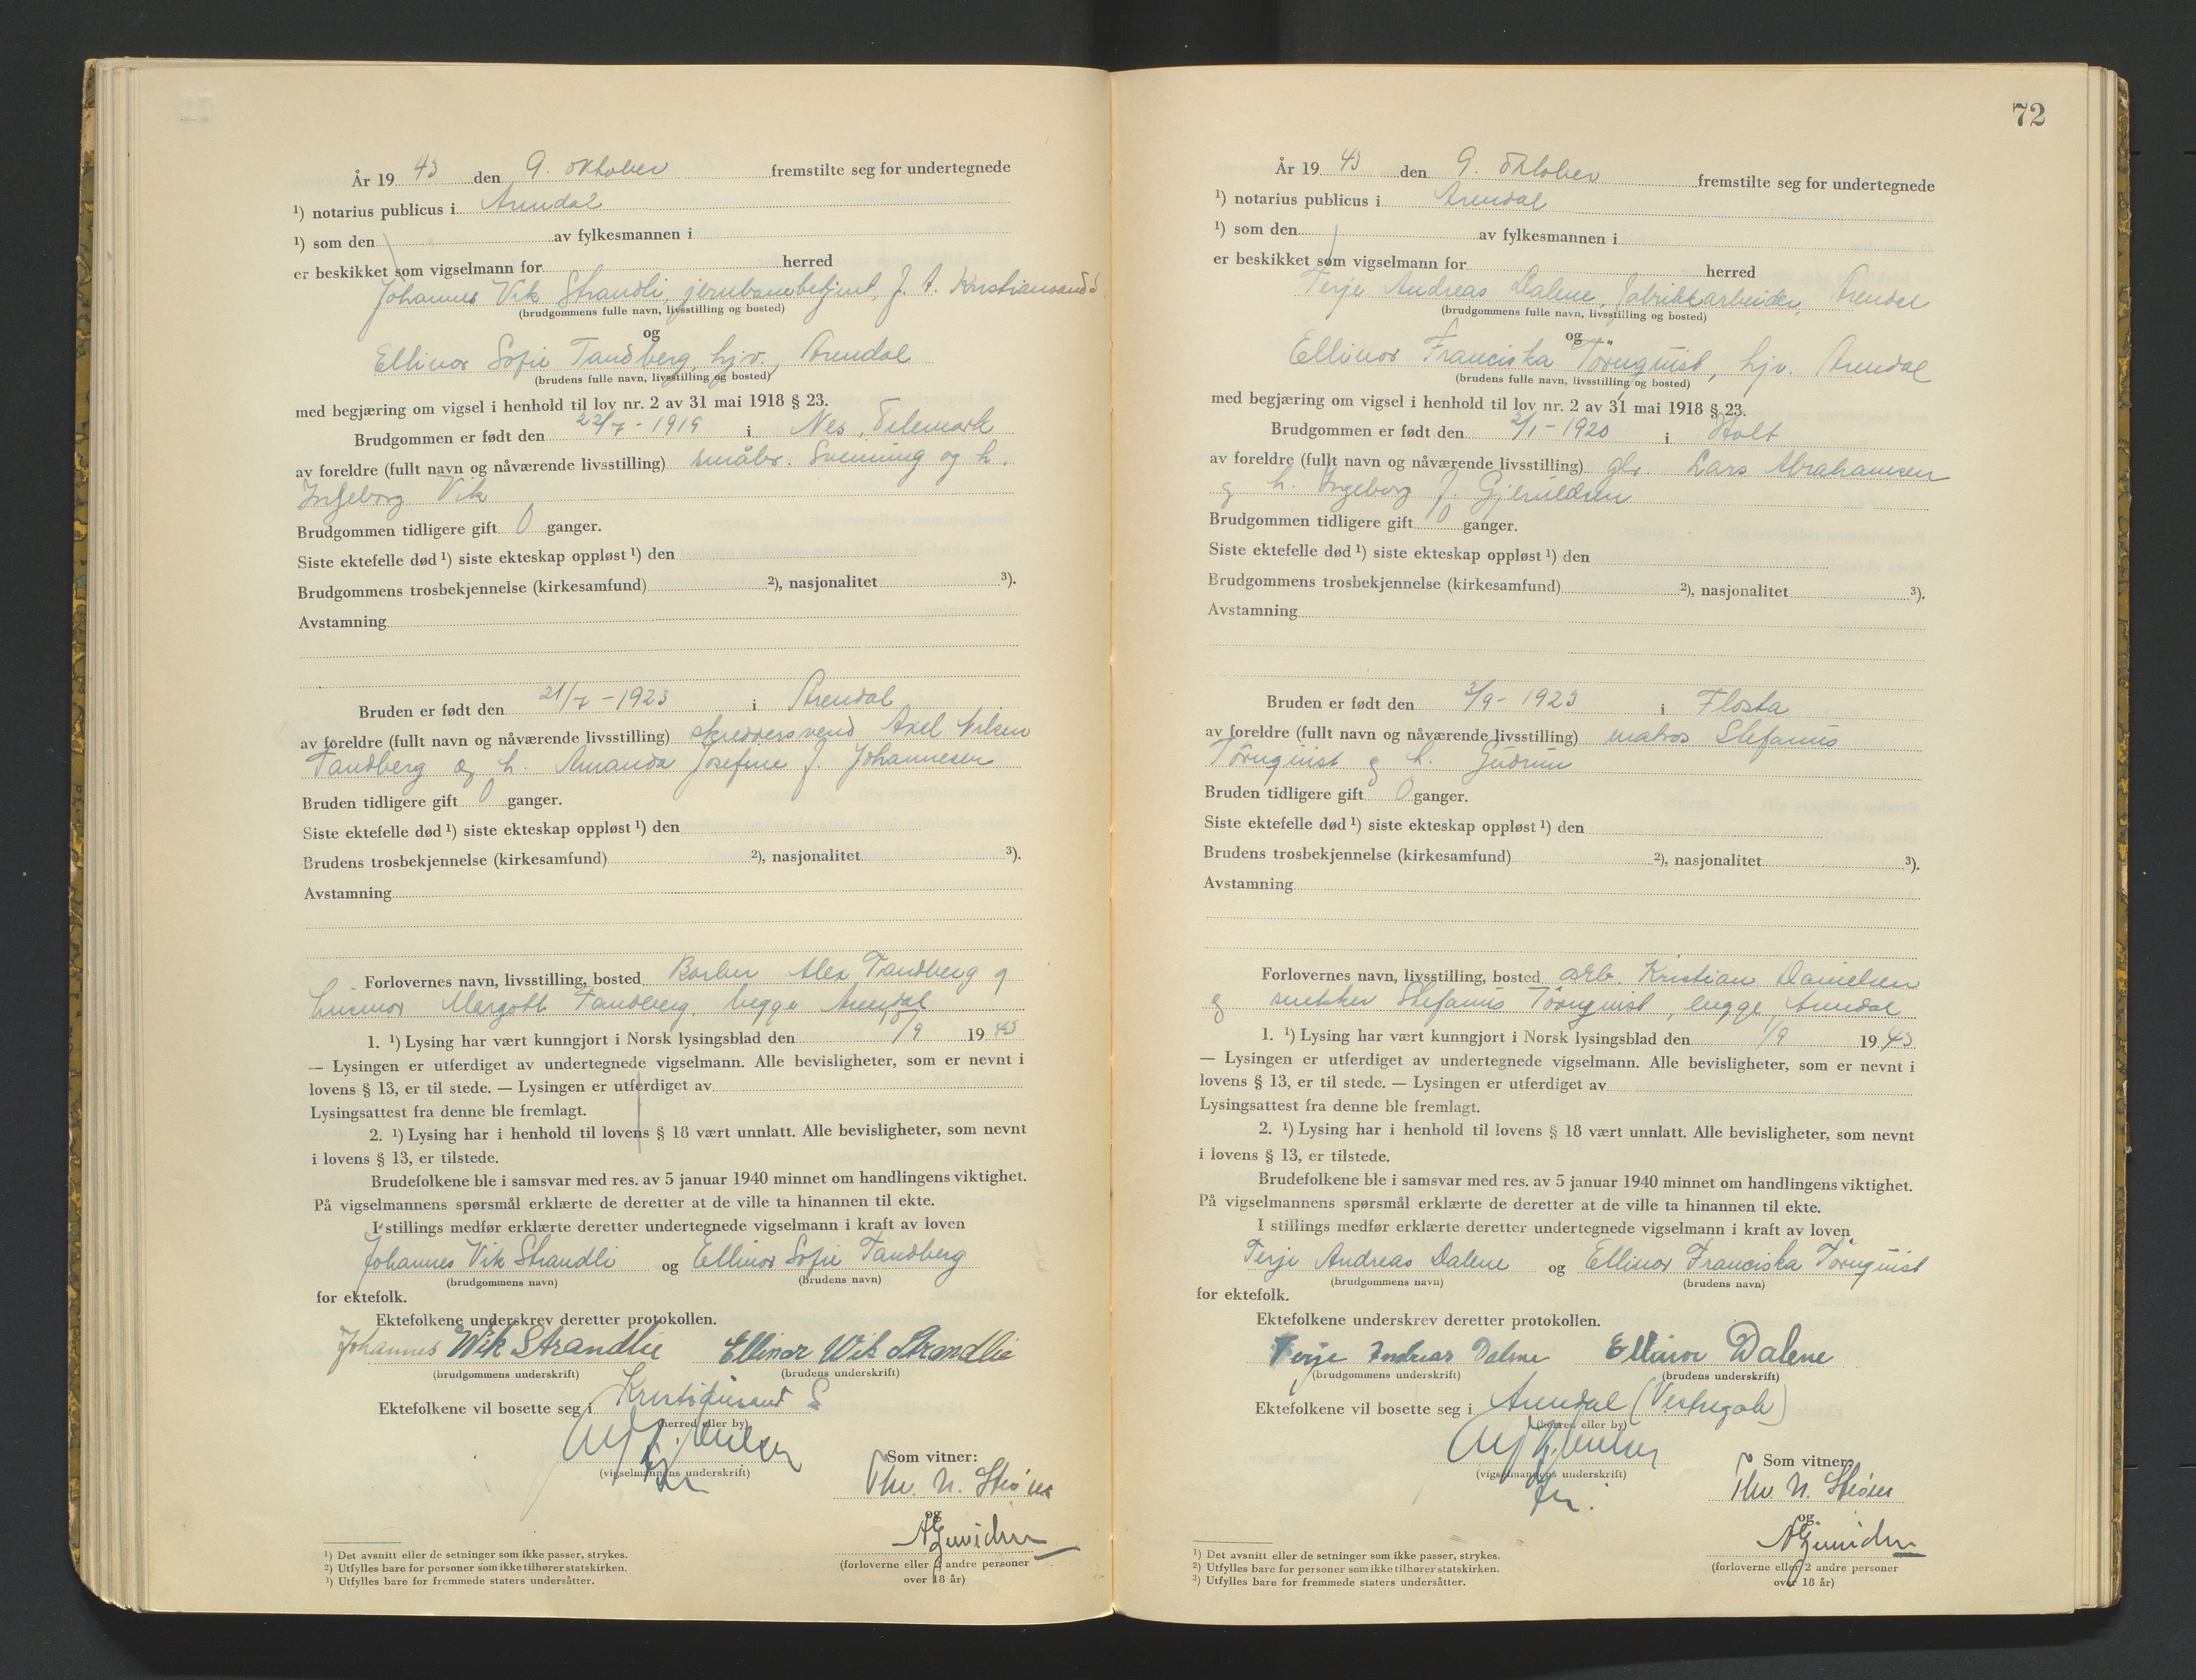 År 19 43 den 9. oktober fremstilte seg for undertegnede
¹) notarius publicus i Arendal
¹) som den av fylkesmannen i
er beskikket som vigselmann for herred
Johannes Vik Strandli, jernbanebetjent, Kristiansand
(brudgommens fulle navn, livsstilling og bosted)
og
Ellinor Sofie Tandberg, hjv., Arendal
(brudens fulle navn, livsstilling og bosted)
med begjæring om vigsel i henhold til lov nr. 2 av 31 mai 1918 § 23.
Brudgommen er født den 22/7 - 1919 i Nes, Telemark
av foreldre (fullt navn og nåværende livsstilling) småbr. Svenning og h.
Ingeborg Vik
Brudgommen tidligere gift 0 ganger.
Siste ektefelle død ¹) siste ekteskap oppløst ¹) den
Brudgommens trosbekjennelse (kirkesamfund) ²), nasjonalitet ³).
Avstamning
Bruden er født den 21/7 - 1923 i Arendal
av foreldre (fullt navn og nåværende livsstilling) skreddersvend Axel Nilsen
Tandberg og h. Amanda Josefine f. Johannesen
Bruden tidligere gift 0 ganger.
Siste ektefelle død ¹) siste ekteskap oppløst ¹) den
Brudens trosbekjennelse (kirkesamfund) ²), nasjonalitet ³).
Avstamning
Forlovernes navn, livsstilling, bosted Barber Alex Tandberg og
Margoth Tandberg, begge Arendal
1. ¹) Lysing har vært kunngjort i Norsk lysingsblad den /9 19 43
— Lysingen er utferdiget av undertegnede vigselmann. Alle bevisligheter, som er nevnt i
lovens § 13, er til stede. — Lysingen er utferdiget av
Lysingsattest fra denne ble fremlagt.
2. ¹) Lysing har i henhold til lovens § 18 vært unnlatt. Alle bevisligheter, som nevnt
i lovens § 13, er tilstede.
Brudefolkene ble i samsvar med res. av 5 januar 1940 minnet om handlingens viktighet.
På vigselmannens spørsmål erklærte de deretter at de ville ta hinannen til ekte.
I stillings medfør erklærte deretter undertegnede vigselmann i kraft av loven
Johannes Vik Strandli og Ellinor Sofie Tandberg
(brudgommens navn) (brudens navn)
for ektefolk.
Ektefolkene underskrev deretter protokollen.
Johannes Wik Strandlie Ellinor Wik Strandlie
(brudgommens underskrift) (brudens underskrift)
Ektefolkene vil bosette seg i Kristiansand S
(herred eller by)
(vigselmannens underskrift)
Som vitner:
Thv. N.
og
(forloverne eller 2 andre personer
over 18 år)
¹) Det avsnitt eller de setninger som ikke passer, strykes.
²) Utfylles bare for personer som ikke tilhører statskirken.
³) Utfylles bare for fremmede staters undersåtter.
72
År 19 43 den 9. oktober fremstilte seg for undertegnede
¹) notarius publicus i Arendal
¹) som den av fylkesmannen i
er beskikket som vigselmann for herred
Terje Andreas Dalene, fabrikkarbeider, Arendal
(brudgommens fulle navn, livsstilling og bosted)
og
Ellinor Franciska Törnquist, hjv. Arendal
(brudens fulle navn, livsstilling og bosted)
med begjæring om vigsel i henhold til lov nr. 2 av 31 mai 1918 § 23.
Brudgommen er født den /1 - 1920 i Holt
av foreldre (fullt navn og nåværende livsstilling) Lars Abrahamsen
og h. Ingeborg f. Gjeruldsen
Brudgommen tidligere gift 0 ganger.
Siste ektefelle død ¹) siste ekteskap oppløst ¹) den
Brudgommens trosbekjennelse (kirkesamfund) ²), nasjonalitet ³).
Avstamning
Bruden er født den 3/9 - 1923 i Flosta
av foreldre (fullt navn og nåværende livsstilling) matros Stefanus
Törnquist og h. Gudrun
Bruden tidligere gift 0 ganger.
Siste ektefelle død ¹) siste ekteskap oppløst ¹) den
Brudens trosbekjennelse (kirkesamfund) ²), nasjonalitet ³).
Avstamning
Forlovernes navn, livsstilling, bosted arb. Kristian Danielsen
og snekker Stefanus Törnquist, begge Arendal
1. ¹) Lysing har vært kunngjort i Norsk lysingsblad den 1/9 19 43
— Lysingen er utferdiget av undertegnede vigselmann. Alle bevisligheter, som er nevnt i
lovens § 13, er til stede. — Lysingen er utferdiget av
Lysingsattest fra denne ble fremlagt.
2. ¹) Lysing har i henhold til lovens § 18 vært unnlatt. Alle bevisligheter, som nevnt
i lovens § 13, er tilstede.
Brudefolkene ble i samsvar med res. av 5 januar 1940 minnet om handlingens viktighet.
På vigselmannens spørsmål erklærte de deretter at de ville ta hinannen til ekte.
I stillings medfør erklærte deretter undertegnede vigselmann i kraft av loven
Terje Andreas Dalene og Ellinor Franciska Törnquist
(brudgommens navn) (brudens navn)
for ektefolk.
Ektefolkene underskrev deretter protokollen.
Terje Andreas Dalene Ellinor Dalene
(brudgommens underskrift) (brudens underskrift)
Ektefolkene vil bosette seg i Arendal (Vestregate)
(herred eller by)
(vigselmannens underskrift)
Som vitner:
Thv. N.
og
(forloverne eller 2 andre personer
over 18 år)
¹) Det avsnitt eller de setninger som ikke passer, strykes.
²) Utfylles bare for personer som ikke tilhører statskirken.
³) Utfylles bare for fremmede staters undersåtter.